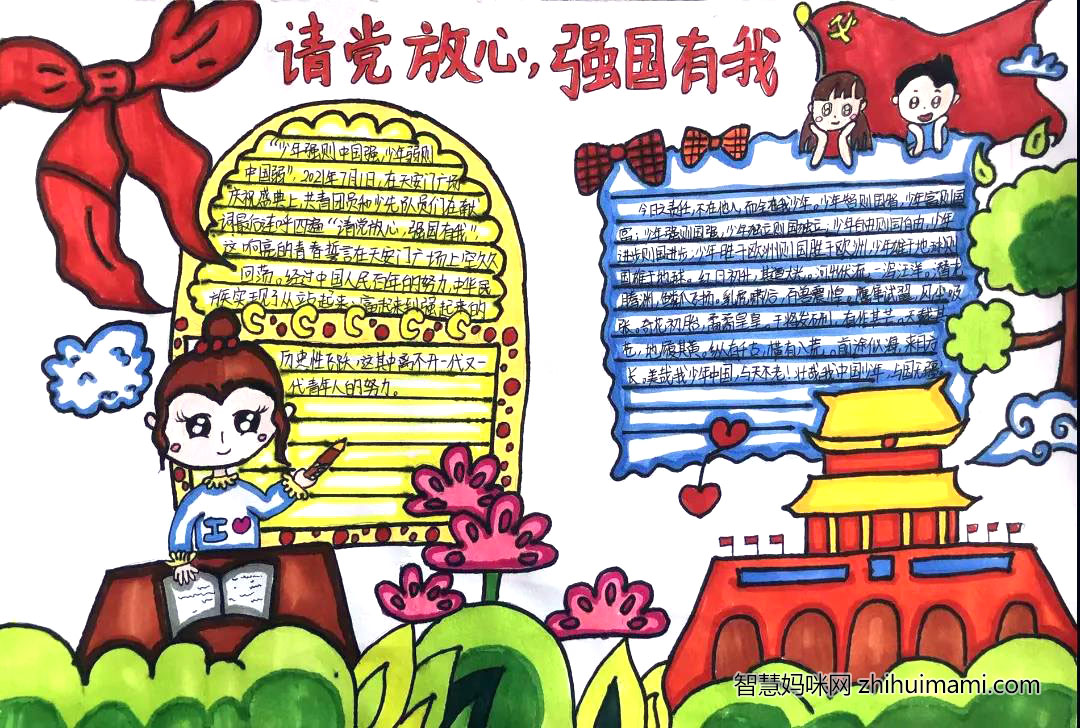 请党放心，强国有我
“少年强则中国强，少年弱则
中国弱”，2021年7月1日，在天安门广场
庆祝盛典上，共青团员和少先队员们在献
词最后连呼四遍“请党放心，强国有我”
这响亮的青春誓言在天安门广场上空久久
回荡。经过中国人民百年的努力，中华民
族实现了从站起来、富起来到强起来的
历史性飞跃，这其中离不开一代又一
代青年人的努力。
今日之责任，不在他人，而全在我少年。少年智则国智，少年富则国
富；少年强则国强，少年独立则国独立；少年自由则国自由，少年
进步则国进步；少年胜于欧洲则国胜于欧洲，少年雄于地球则
国雄于地球。红日初升，其道大光。河出伏流，一泻汪洋。潜龙
腾渊，鳞爪飞扬。乳虎啸谷，百兽震惶。鹰隼试翼，风尘吸
张。奇花初胎，矞矞皇皇。干将发硎，有作其芒。天戴其
苍，地履其黄。纵有千古，横有八荒。前途似海，来日方
长。美哉我少年中国，与天不老！壮哉我中国少年，与国无疆！
I
智慧妈咪网 zhihuimami.com